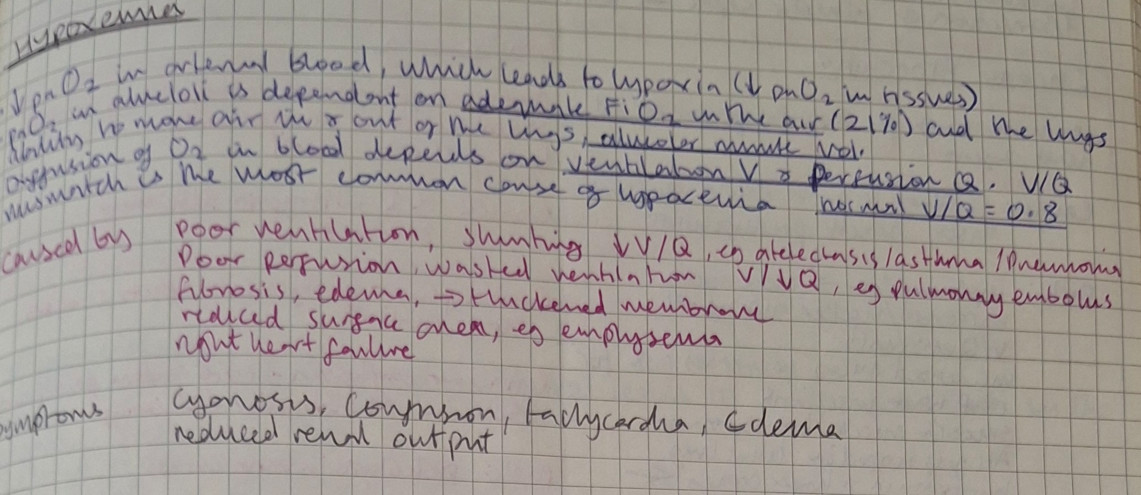 Hypoxemia
↓ PaO2 in arterial blood, which leads to hypoxia (↓ PaO2 in tissues)
PaO2 in alveloli is dependant on adequate FiO2 in the air (21%) and the lungs
Ability to move air in & out of the lungs, alveolar minute vol.
Diffusion of O2 in blood depends on ventilation V & perfusion Q. V/Q
mismatch is the most common cause of hypoxemia normal V/Q = 0.8
Caused by Poor ventilation, shunting ↓V/Q, eg atelectasis/asthma/Pneumonia
Poor Perfusion, wasted ventilation V/↓Q, eg pulmonary embolus
fibrosis, edema, → thickened membrane
reduced surface area, eg emphysema
right heart failure
symptoms Cyanosis, Confusion, tachycardia, Edema
reduced renal output